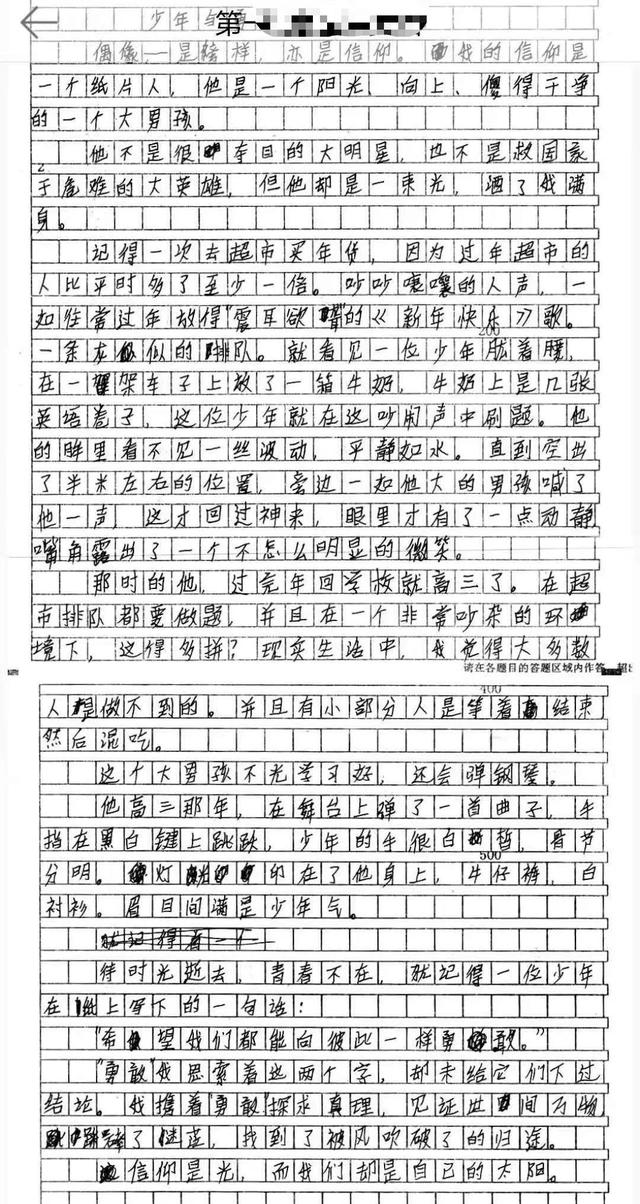 第一
少年
偶像,一是榜样,亦是信仰。我的信仰是
一个纸片人,他是一个阳光、向上、傻得干净
的一个大男孩。
他不是很夺目的大明星,也不是救国家
于危难的大英雄,但他却是一束光,洒了我满
身。
记得一次去超市买年货,因为过年超市的
人比平时多了至少一倍。吵吵嚷嚷的人声,一
如往常过年放得"震耳欲聋"的《新年快乐》歌。
200
一条龙似的排队。就看见一位少年肱着腰,
在一架车子上放了一箱牛奶,牛奶上是几张
英语卷子,这位少年就在这吵闹声中刷题。他
的眸里看不见一丝波动,平静如水。直到空出
了半米左右的位置,旁边一如他大的男孩喊了
他一声,这才回过神来,眼里才有了一点动静,
嘴角露出了一个不怎么明显的微笑。
那时的他,过完年回学校就高三了。在超
市排队都要做题,并且在一个非常吵杂的环
境下,这得多拼?现实生活中,我觉得大多数
请在各题目的答题区域内作答,超
400
人是做不到的。并且有小部分人是等着结束
然后混吃。
这个大男孩不光学习好,还会弹钢琴。
他高三那年,在舞台上弹了一首曲子,手
指在黑白键上跳跃,少年的手很白皙,骨节
500
分明。灯光印在了他身上,牛仔裤,白
衬衫。眉目间满是少年气。
待时光逝去,青春不在,就记得一位少年
在纸上写下的一句话:
"希望我们都能向彼此一样勇敢。"
"勇敢"我思索着这两个字,却未给它们下过
结论。我携着"勇敢"探求真理,见证世间万物,
了迷茫,找到了被风吹破了的归途。
信仰是光,而我们却是自已的太阳。